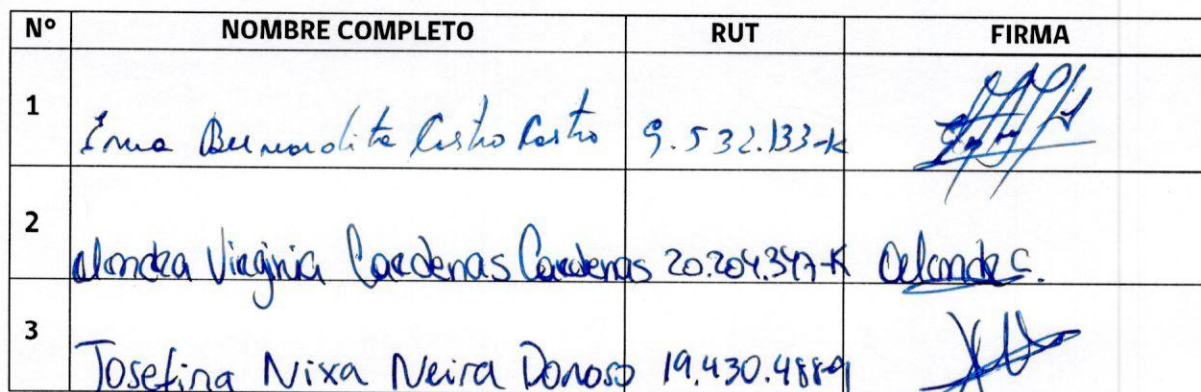 Nº NOMBRE COMPLETO RUT FIRMA
1 Irma Bernardita Castro Castro 9.532.133-K
2 Alondra Virginia Cardenas Cardenas 20.204.347-K Alondra C.
3 Josefina Nixa Neira Donoso 19.430.488-9